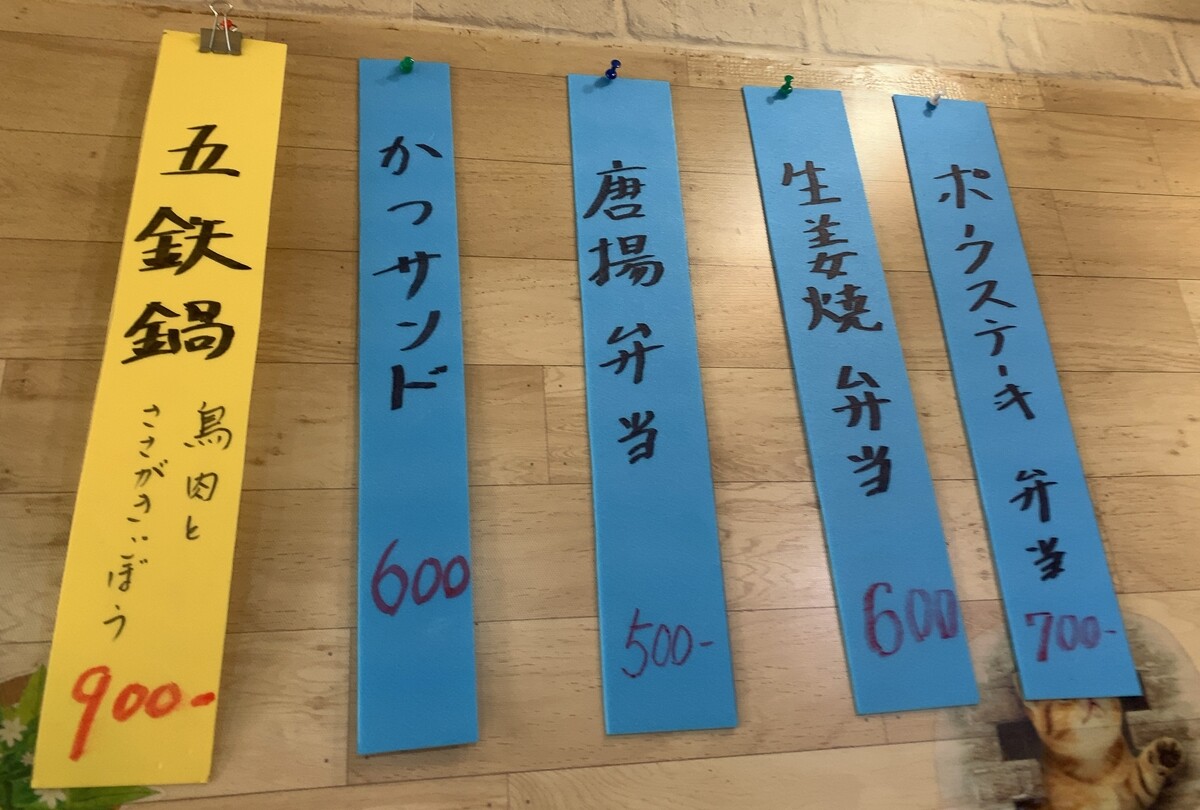 ポークステーキ弁当
700-
生姜焼弁当
600
唐揚弁当
500-
かつサンド
600
五鉄鍋
鳥肉と
ささがきごぼう
900-